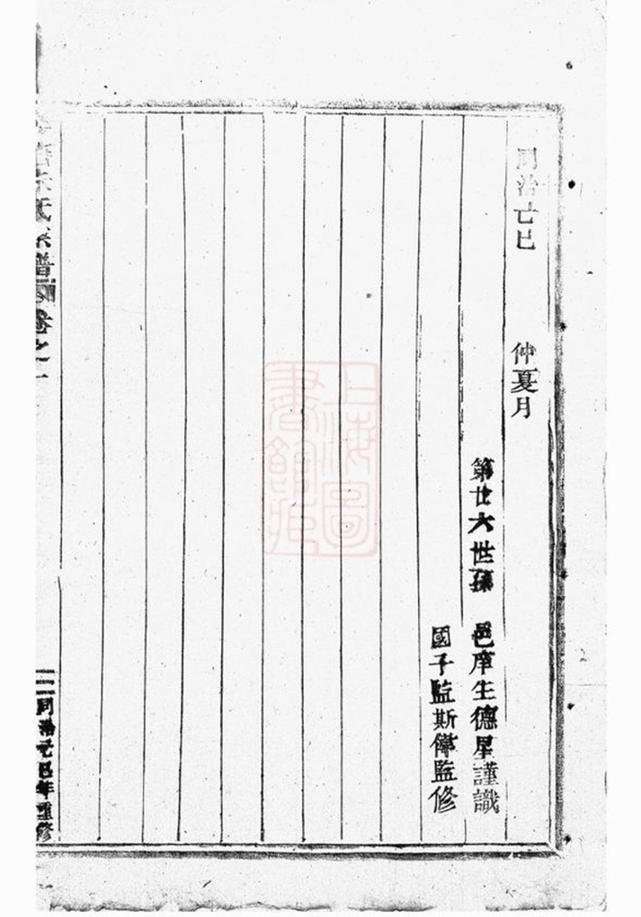 同治己巳 仲夏月
第廿六世孫 邑庠生德星謹識
國子監斯偉監修
上海圖
書館藏
氏宗譜 卷之一
同治己巳年重修